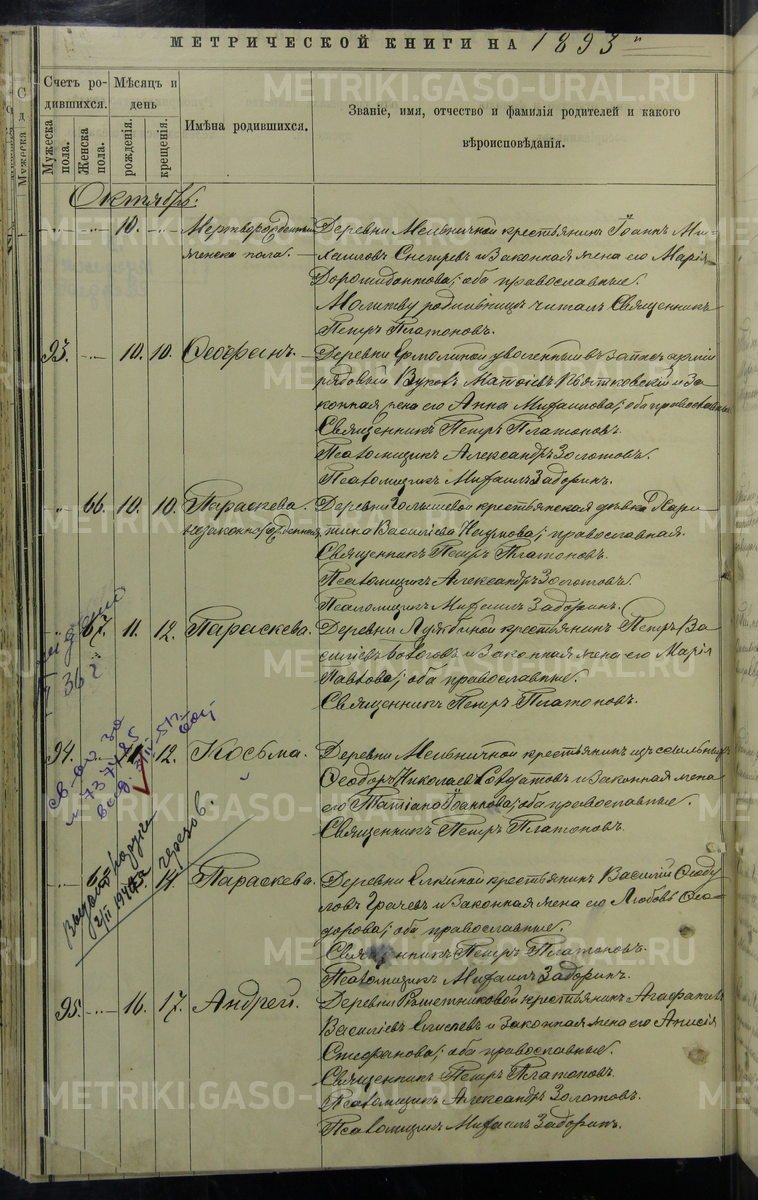 МЕТРИЧЕСКОЙ КНИГИ НА 1893
Счетъ ро-
дившихся.
Мѣсяцъ и
день
Мужеска
пола.
Женска
пола.
рожденія.
крещенія.
Имѣна родившихся.
Званіе, имя, отчество и фамилія родителей и какого
вѣроисповѣданія.
Октябрь:
10. Мертворожденный Деревни Мельничной крестьянинъ Іоаннъ Ми-
женска пола. хаиловъ Снегиревъ и законная жена его Марія
Доримидонтова; оба православные.
Молитву родильницѣ читалъ Священникъ
Петръ Платоновъ.
93. 10. 10. Ѳеофанъ. Деревни Ермолиной уволенный въ запасъ арміи
рядовый Матѳіевъ Квятковскій и за-
конная жена его Анна Михаилова; оба православные
Священникъ Петръ Платоновъ.
Псаломщикъ Александръ Золотовъ.
Псаломщикъ Михаилъ Задоринъ.
66. 10. 10. Параскева. Деревни крестьянская дѣвка Хари-
незаконнорожденная тина Василіева Наумова; православная.
Священникъ Петръ Платоновъ.
Псаломщикъ Александръ Золотовъ
Псаломщикъ Михаилъ Задоринъ.
67. 11. 12. Параскева. Деревни крестьянинъ Петръ Ва-
силіевъ и законная жена его Марія
Павлова; оба православные.
Священникъ Петръ Платоновъ.
94. 12. Косьма. Деревни Мельничной крестьянинъ изъ ссыльныхъ
Ѳеодоръ Николаевъ Солдатовъ и законная жена
его Татіана Іоаннова; оба православные.
Священникъ Петръ Платоновъ.
14. Параскева. Деревни Елкиной крестьянинъ Василій Ѳеоду-
ловъ Грачевъ и законная жена его Любовь Ѳео-
дорова; оба православные.
Священникъ Петръ Платоновъ.
Псаломщикъ Михаилъ Задоринъ.
95. 16. 17. Андрей. Деревни Рѣшетниковой крестьянинъ Агафангелъ
Василіевъ Елисеевъ и законная жена его Анисія
Стефанова; оба православные.
Священникъ Петръ Платоновъ.
Псаломщикъ Александръ Золотовъ.
Псаломщикъ Михаилъ Задоринъ.
METRIKI.GASO-URAL.RU